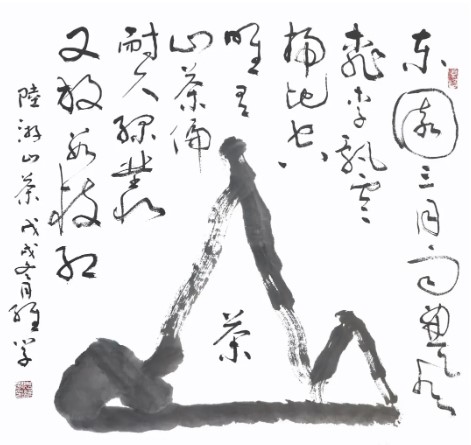 东園三月雨兼风
桃李飘零
掃地空
唯有
山茶偏
耐久绿叢
又放数枝红
陸游山茶戊戌冬月
茶